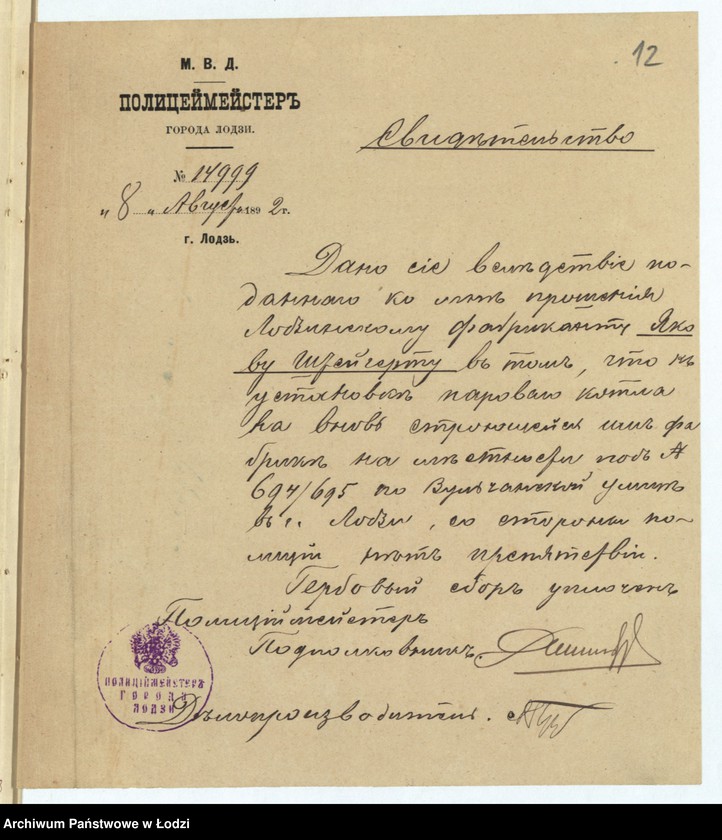 12
М. В. Д.
ПОЛИЦЕЙМЕЙСТЕРЪ
ГОРОДА ЛОДЗИ.
№ 14999
„ 8 „ Августа 1892 г.
г. Лодзь.
Свидѣтельство
Дано сіе вслѣдствіе по-
даннаго ко мнѣ прошенія
Лодзинскому фабриканту Яко
ву Штейгерту въ томъ, что къ
установкѣ пароваго котла
на вновь строющейся имъ фа
брикѣ на мѣстности подъ №
694/695 по Вульчанской улицѣ
въ г. Лодзи, со стороны по-
лиціи нѣтъ препятствій.
Гербовый сборъ уплоченъ
Полиціймейстеръ
Подполковникъ
Дѣлопроизводитель.
ПОЛИЦІЙМЕЙСТЕРЪ
ГОРОДА
ЛОДЗИ
Archiwum Państwowe w Łodzi